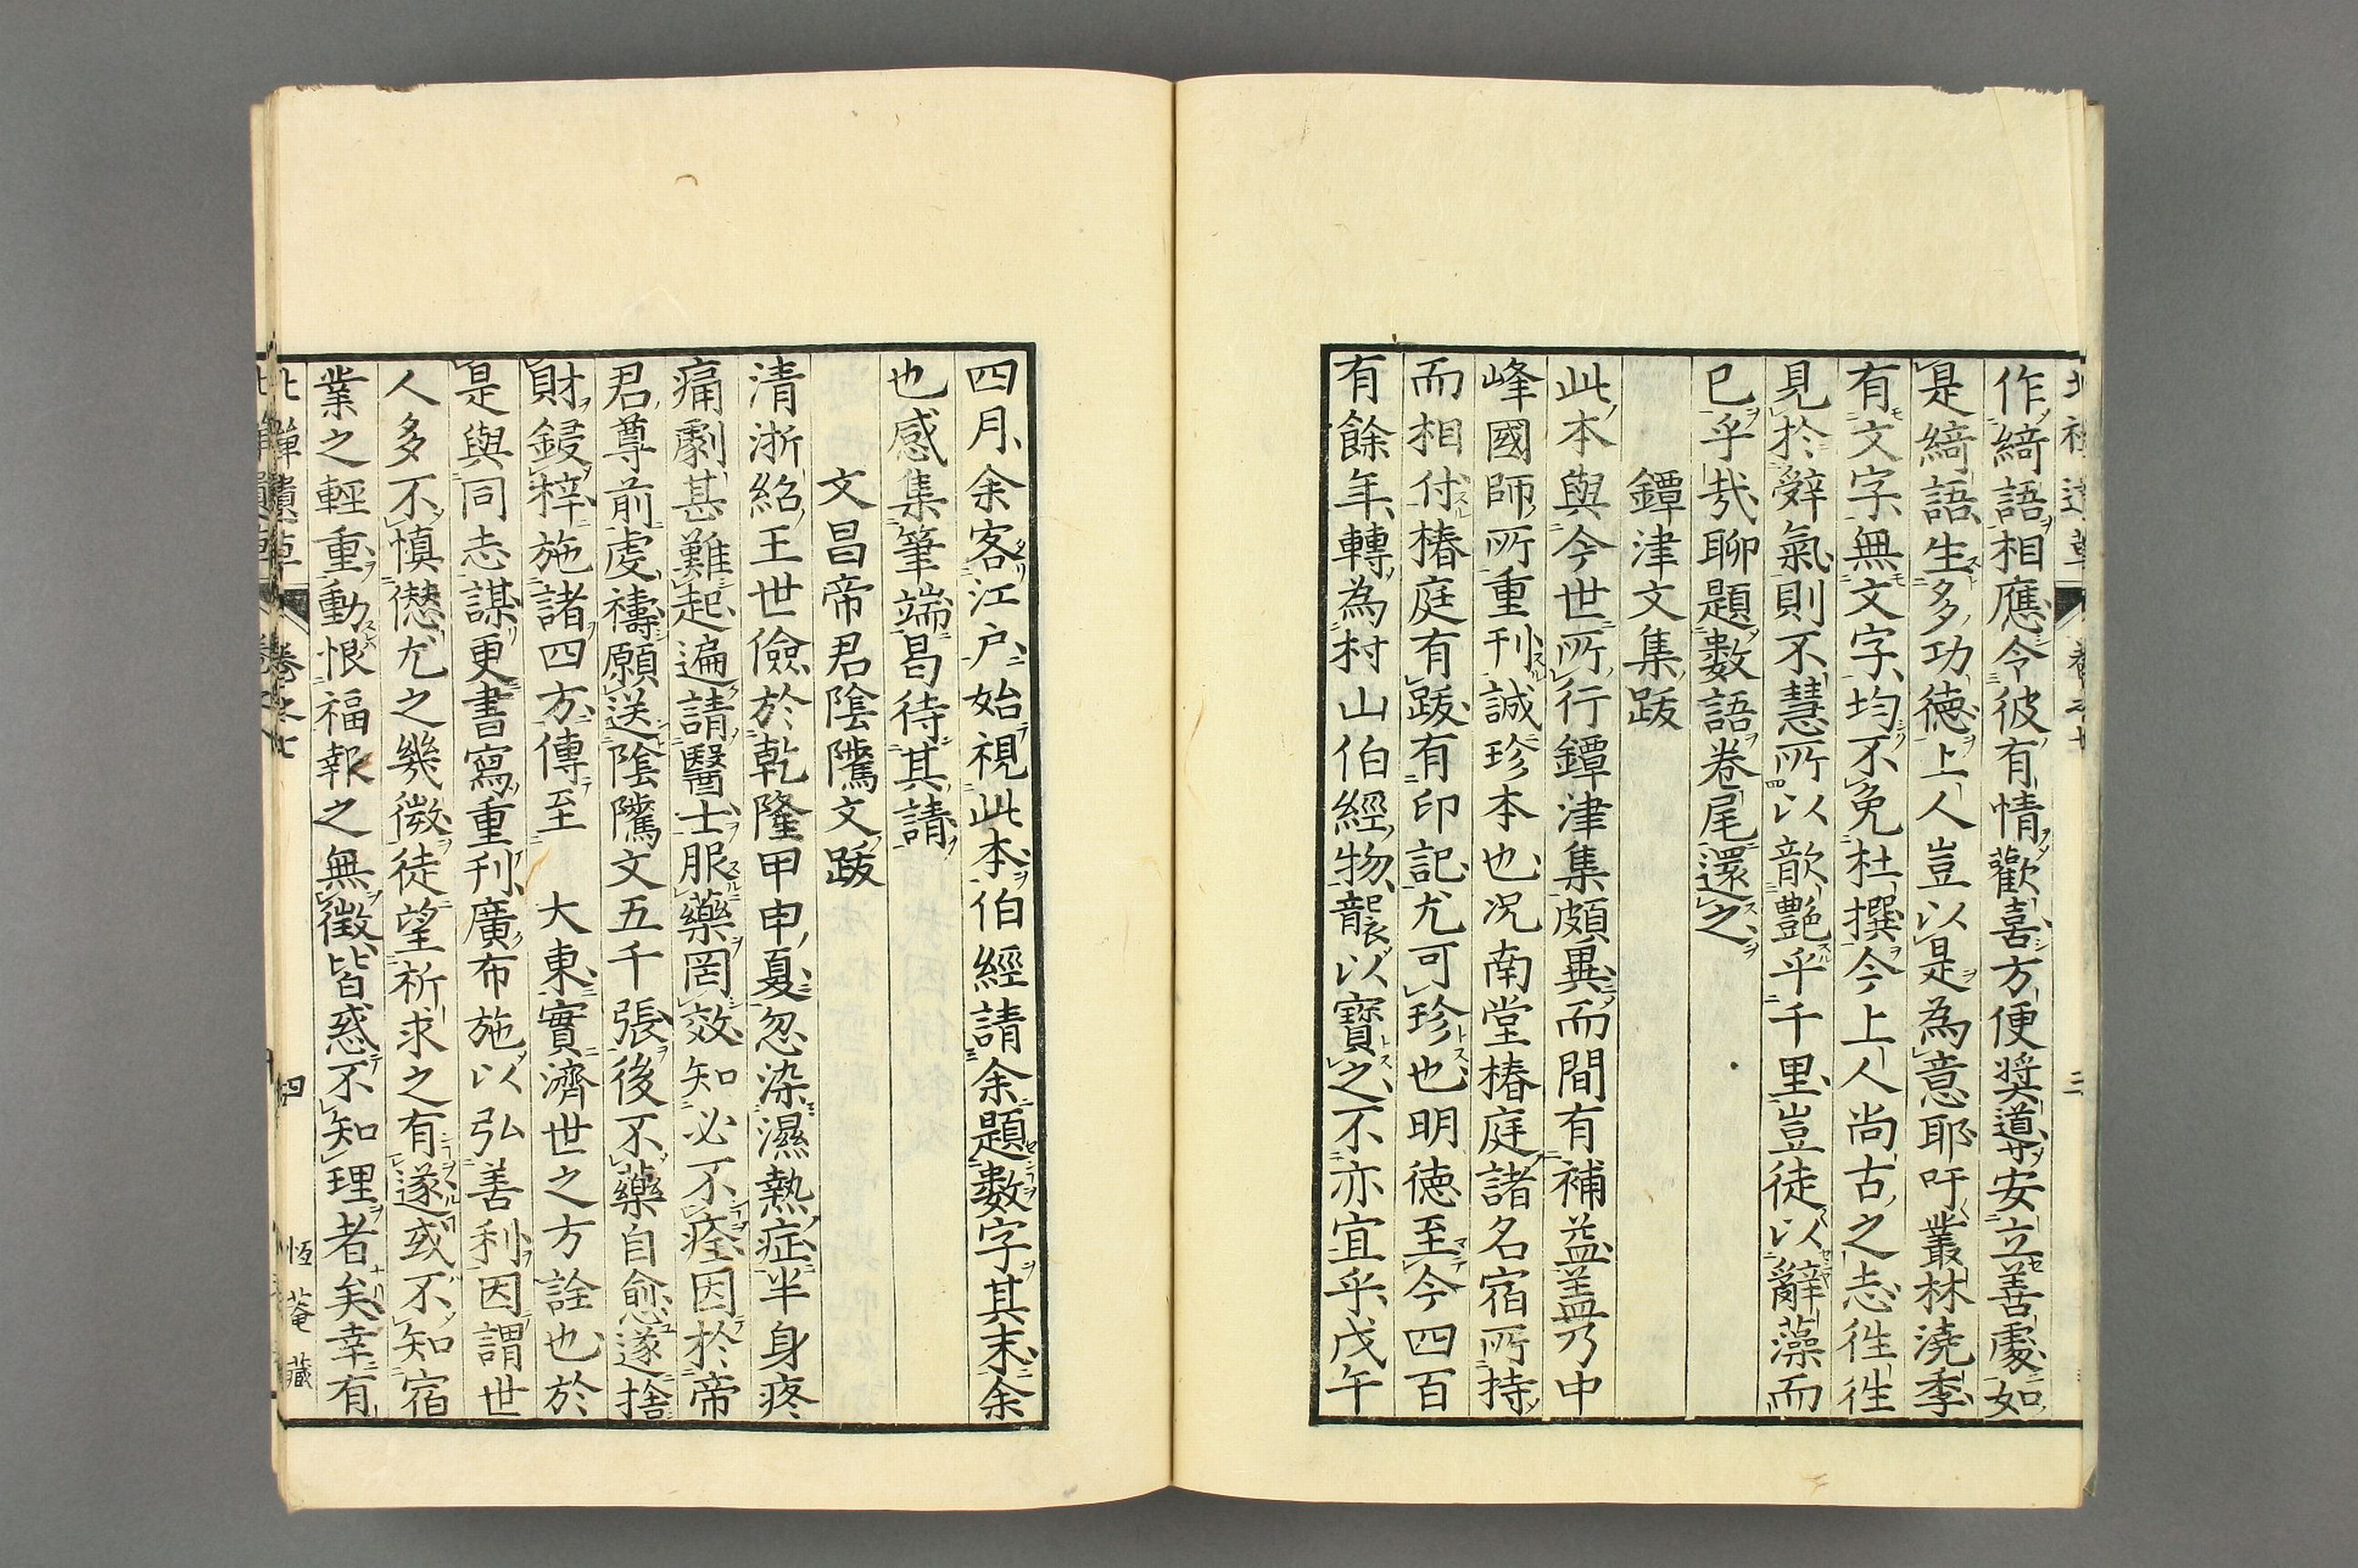 作綺語相應令彼有情歡喜方便奨道安立善處如
是綺語生多功德上人豈以是為意耶吁叢林澆季
有文字無文字均不免杜撰今上人尚古之志徃徃
見於辭氣則不慧所以歆艷乎千里豈徒以辭藻而
已乎哉聊題數語卷尾還之
鐔津文集跋
此本與今世所行鐔津集頗異而間有補益蓋乃中
峰國師所重刊誠珍本也況南堂椿庭諸名宿所持
而相付椿庭有跋有印記尤可珍也明德至今四百
有餘年轉為村山伯經物襲以寶之不亦宜乎戊午
四月余客江户始視此本伯經請余題數字其末余
也感集筆端曷待其請
文昌帝君陰隲文跋
清浙紹王世儉於乾隆甲申夏忽染濕熱症半身疼
痛劇甚難起遍請醫士服藥罔效知必不痊因於帝
君尊前虔禱願送陰隲文五千張後不藥自愈遂捨
財鋟梓施諸四方傳至　大東實濟世之方詮也於
是與同志謀更書寫重刊廣布施以弘善利因謂世
人多不慎僁尤之幾微徒望祈求之有遂或不知宿
業之輕重動恨福報之無徵皆惑不知理者矣幸有
卷之七
四
恆菴藏